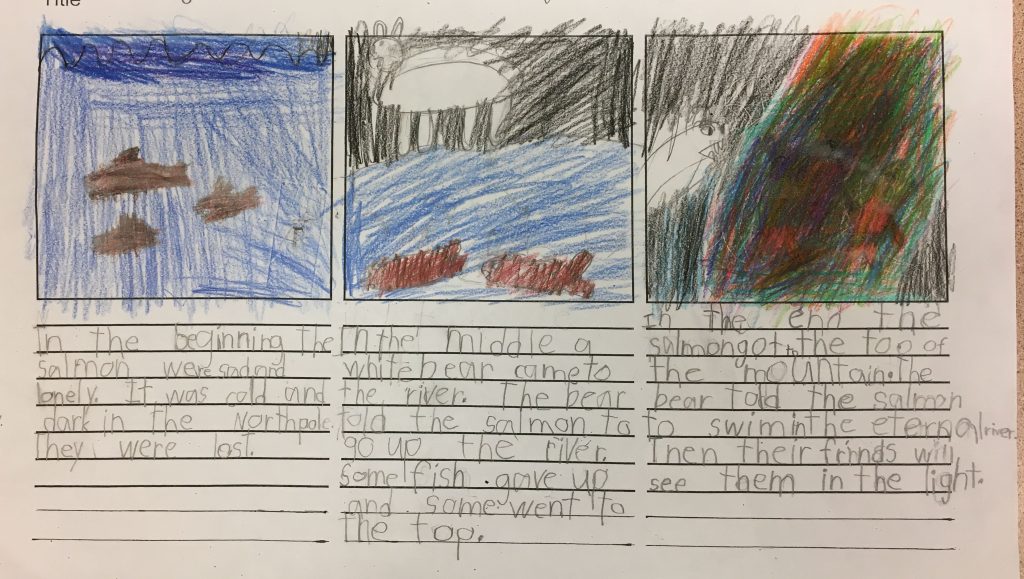 Title
In the beginning the
salmon were sad and
lonely. It was cold and
dark in the Northpole.
They were lost.
In the middle a
white bear came to
the river. The bear
told the salmon to
go up the river.
Some fish gave up
and some went to
the top.
In the end the
salmon got to the top of
the mountain. The
bear told the salmon
to swim in the eternal river.
Then their frinds will
see them in the light.